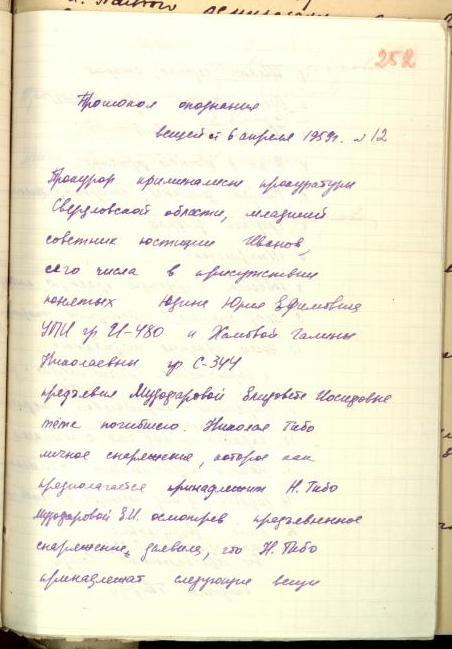 258
Протокол опознания
вещей от 6 апреля 1959г. №12
Прокурор криминалист прокуратуры
Свердловской области, младший
советник юстиции Иванов,
сего числа в присутствии
понятых Юдина Юрия Ефимовича
УПИ гр И-480 и Хамовой Галины
Николаевны гр С-344
предъявил Елизавете Иосифовне
тёте погибшего Николая Тибо
личное снаряжение, которое как
предполагается принадлежит Н. Тибо
осмотрев предъявленное
снаряжение, заявила, что Н. Тибо
принадлежат следующие вещи